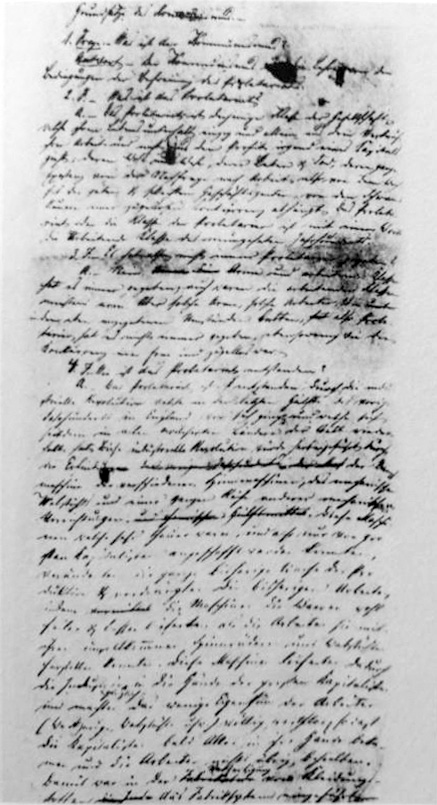 Grundsätze des Kommunismus.
1. Frage. Was ist der Kommunismus?
Antwort. Der Kommunismus ist die Lehre von den
Bedingungen der Befreiung des Proletariats.
2. F. Was ist das Proletariat?
A. Das Proletariat ist diejenige Klasse der Gesellschaft,
welche ihren Lebensunterhalt einzig und allein aus dem Verkauf
ihrer Arbeit und nicht aus dem Profit irgend eines Kapitals
zieht, deren Wohl und Wehe, deren Leben & Tod, deren ganze
Existenz von der Nachfrage nach Arbeit, also von dem Wech-
sel der guten & schlechten Geschäftszeiten, von den Schwan-
kungen einer zügellosen Konkurrenz abhängt. Das Prole-
tariat oder die Klasse der Proletarier ist, mit einem Worte,
die arbeitende Klasse des neunzehnten Jahrhunderts.
3. F. Es hat also nicht immer Proletarier gegeben?
A. Nein. Arme und arbeitende Klassen
hat es immer gegeben; auch waren die arbeitenden Klassen
meistens arm. Aber solche Arme, solche Arbeiter, die in
den eben angegebenen Umständen lebten, also Prole-
tarier, hat es nicht immer gegeben, ebensowenig wie die
Konkurrenz immer frei und zügellos war.
4. F. Wie ist das Proletariat entstanden?
A. Das Proletariat ist entstanden durch die indu-
strielle Revolution, welche in der letzten Hälfte des vorigen
Jahrhunderts in England vor sich ging und welche sich
seitdem in allen zivilisierten Ländern der Welt wieder-
holt hat. Diese industrielle Revolution wurde herbeigeführt durch
die Erfindung der Dampf-
maschine, der verschiedenen Spinnmaschinen, des mechanischen
Webstuhls und einer ganzen Reihe anderer mechanischer
Vorrichtungen. Diese Maschi-
nen, welche sehr teuer waren und also nur von gro-
ßen Kapitalisten angeschafft werden konnten,
veränderten die ganze bisherige Weise der Pro-
duktion & verdrängten die bisherigen Arbeiter,
indem die Maschinen die Waren wohl-
feiler & besser lieferten als die Arbeiter sie mit
ihren unvollkommenen Spinnrädern und Webstühlen
herstellen konnten. Diese Maschinen lieferten dadurch
die Industrie gänzlich in die Hände der großen Kapitalisten
und machten das wenige Eigentum der Arbeiter
(Werkzeuge, Webstühle usw.) völlig wertlos, so daß
die Kapitalisten bald Alles in ihre Hände beka-
men und die Arbeiter nichts übrig behielten.
Damit war in der Verfertigung von Kleidungs-
stoffen das Fabriksystem eingeführt.